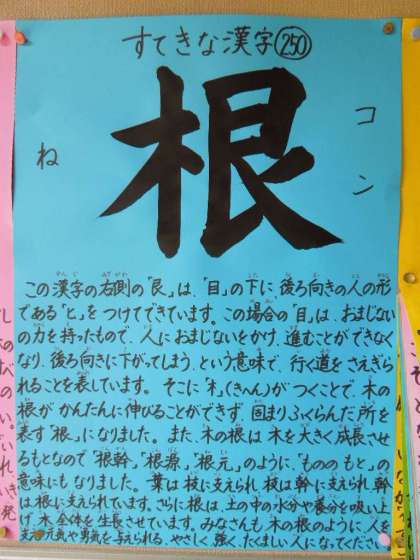 すてきな漢字 250
根
コン
ね
この漢字の右側の「艮」は、「目」の下に後ろ向きの人の形
である「匕」をつけてできています。この場合の「目」は、おまじない
の力を持ったもので、人におまじないをかけ、進むことができなく
なり、後ろ向きに下がってしまう、という意味で、行く道をさえぎら
れることを表しています。そこに「木」(きへん)がつくことで、木の
根がかんたんに伸びることができず、固まりふくらんだ所を
表す「根」になりました。また、木の根は木を大きく成長させ
るもとなので「根幹」「根源」「根元」のように、「もののもと」の
意味にもなりました。葉は枝に支えられ枝は幹に支えられ幹
は根に支えられています。さらに根は、土の中の水分や養分を吸い上
げ、木全体を生長させています。みなさんも木の根のように、人を
支え元気や勇気を与えられる、やさしく強く、たくましい人になってくださ